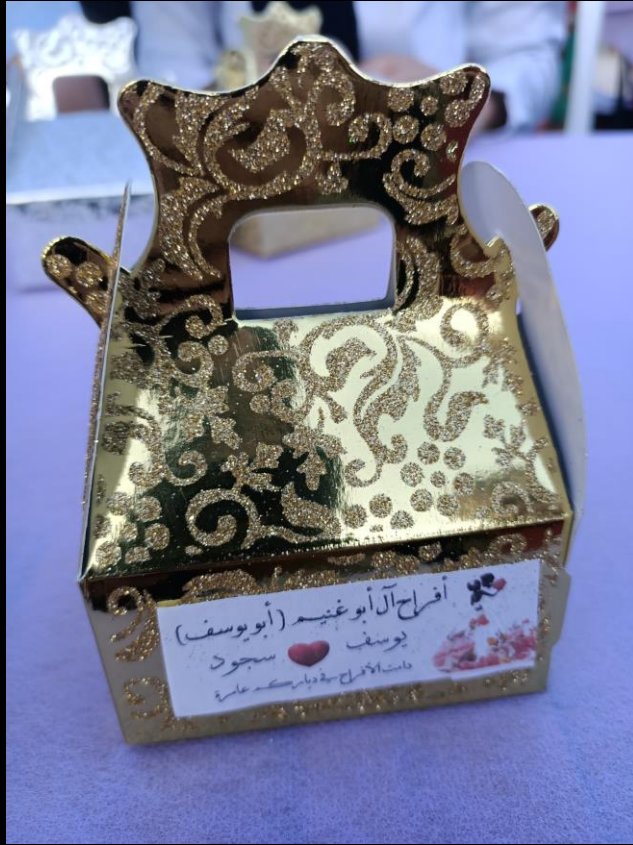 أفراح آل أبو غنيم (أبو يوسف)
يوسف سجود
دامت الأفراح في دياركم عامرة